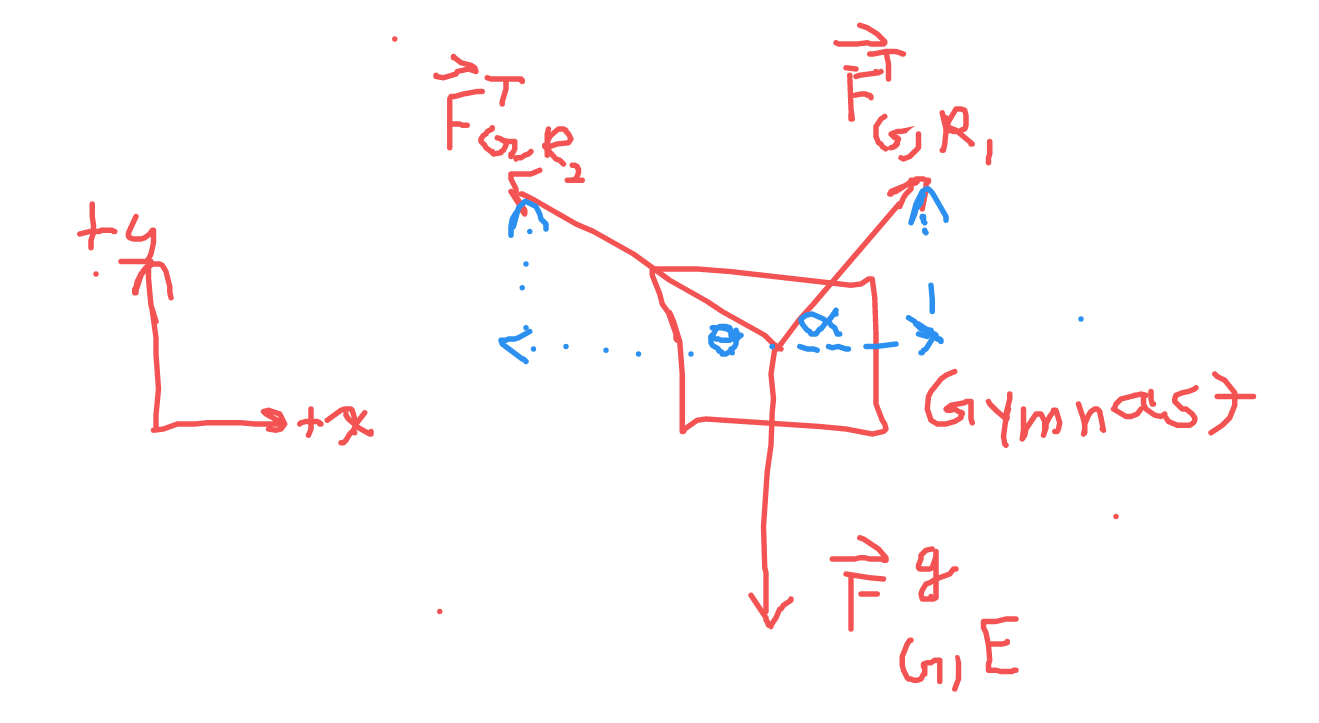 F⃗ᵀ G,R₁
F⃗ᵀ G,R₂
+y
θ α
+x
Gymnast
F⃗ᵍ G,E